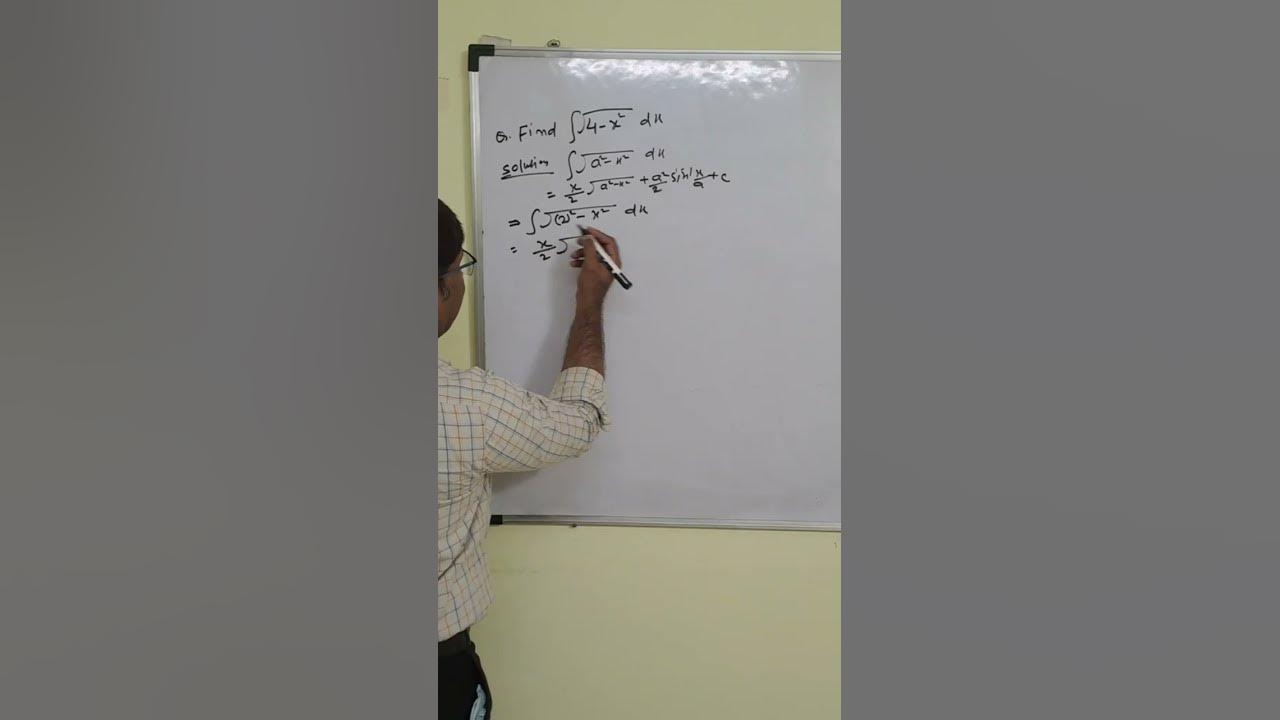 Q. Find ∫√4-x² dx
Solution ∫√a²-x² dx
= x/2 √a²-x² + a²/2 sin⁻¹ x/a + c
⇒ ∫√(2)²-x² dx
= x/2 √